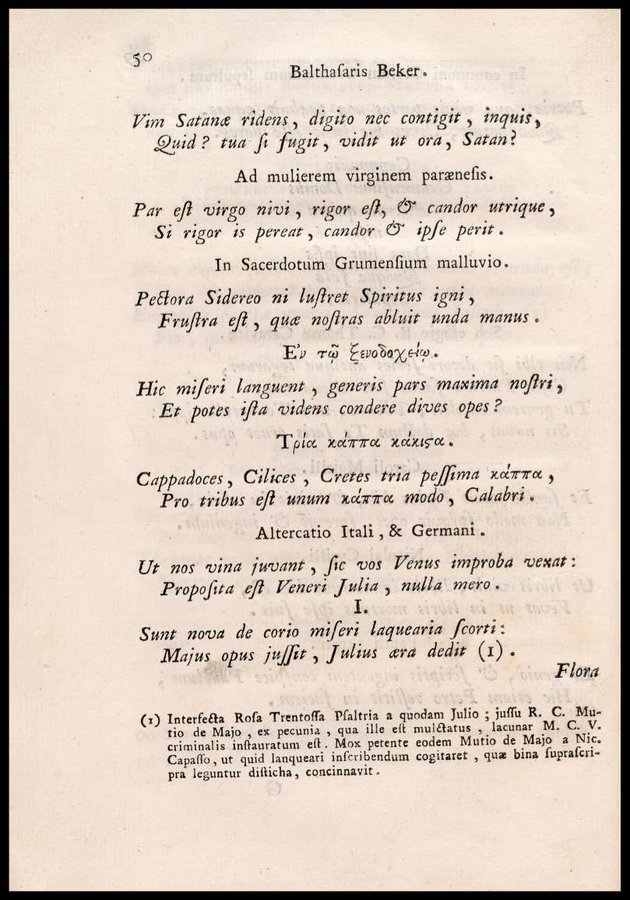 50
Balthaſaris Beker.
Vim Satanæ ridens, digito nec contigit, inquis,
Quid? tua ſi fugit, vidit ut ora, Satan?
Ad mulierem virginem parænesis.
Par eſt virgo nivi, rigor eſt, & candor utrique,
Si rigor is pereat, candor & ipſe perit.
In Sacerdotum Grumenſium malluvio.
Pectora Sidereo ni luſtret Spiritus igni,
Fruſtra eſt, quæ noſtras abluit unda manus.
Εν τῷ ξενοδοχείῳ.
Hic miſeri languent, generis pars maxima noſtri,
Et potes iſta videns condere dives opes?
Τρία κάππα κάκιϛα.
Cappadoces, Cilices, Cretes tria peſſima κάππα,
Pro tribus eſt unum κάππα modo, Calabri.
Altercatio Itali, & Germani.
Ut nos vina juvant, ſic vos Venus improba vexat:
Propoſita eſt Veneri Julia, nulla mero.
I.
Sunt nova de corio miſeri laquearia ſcorti:
Majus opus juſſit, Julius æra dedit (1).
Flora
(1) Interfecta Roſa Trentoſſa Pſaltria a quodam Julio; juſſu R. C. Mu-
tio de Majo, ex pecunia, qua ille eſt mulctatus, lacunar M. C. V.
criminalis inſtauratum eſt. Mox petente eodem Mutio de Majo a Nic.
Capaſſo, ut quid lanqueari inſcribendum cogitaret, quæ bina ſupraſcri-
pra leguntur diſticha, concinnavit.